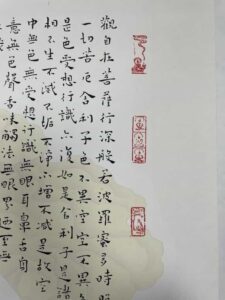 觀自在菩薩行深般若波羅蜜多時照
一切苦厄舍利子色不異空空不異
是色受想行識亦復如是舍利子是諸
相不生不滅不垢不淨不增不減是故空
中無色無受想行識無眼耳鼻舌身
意無色聲香味觸法無眼界乃至無